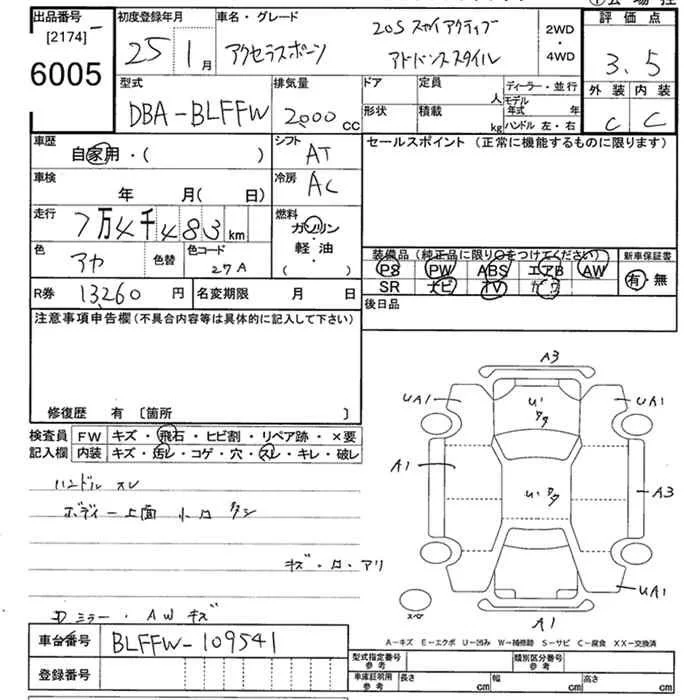 出品番号
[2174]
6005
初度登録年月
25 1 月
車名・グレード
アクセラスポーツ
20S スカイアクティブ
アドバンススタイル
2WD
・
4WD
評価点
3.5
外装 内装
C C
型式
DBA-BLFFW
排気量
2,000 CC
ドア
定員
人
形状
積載
kg
ディーラー・並行
モデル
年式 年
ハンドル 左・右
車歴
自家用・( )
シフト
AT
セールスポイント (正常に機能するものに限ります)
車検
年 月(日)
冷房
AC
走行
7万4千483 km
燃料
ガソリン
軽・油
( )
色
アカ
色替
色コード
27A
装備品 (純正品に限り○をつけてください)
PS PW ABS エアB AW
SR ナビ TV カワ
新車保証書
有・無
R券 13,260 円
名変期限 月 日
後日品
注意事項申告欄 (不具合内容等は具体的に記入して下さい)
修復歴 有 [箇所 ]
検査員
記入欄
FW キズ・飛石・ヒビ割・リペア跡・×要
内装 キズ・汚レ・コゲ・穴・スレ・キレ・破レ
ハンドル スレ
ボディー上面 小ロ タン
キズ・ロ・アリ
Dミラー・AW キズ
A3
UA1
UA1
A1
A3
UA1
A1
スペア
A-キズ E-エクボ U-凹み W-補修跡 S-サビ C-腐食 XX-交換済
車台番号 BLFFW-109541
登録番号
型式指定番号
参考
類別区分番号
参考
車庫証明用
参考
長さ cm
幅 cm
高さ cm